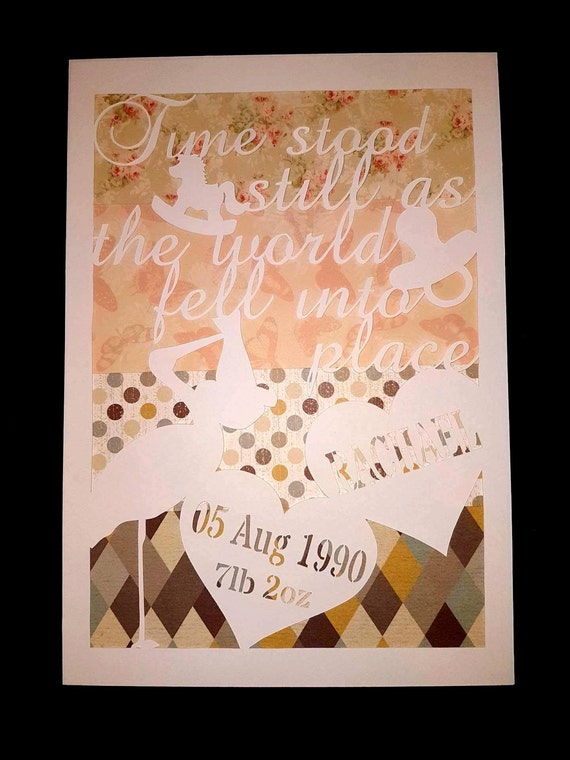 Time stood
still as
the world
fell into
place
RACHAEL
05 Aug 1990
7lb 2oz